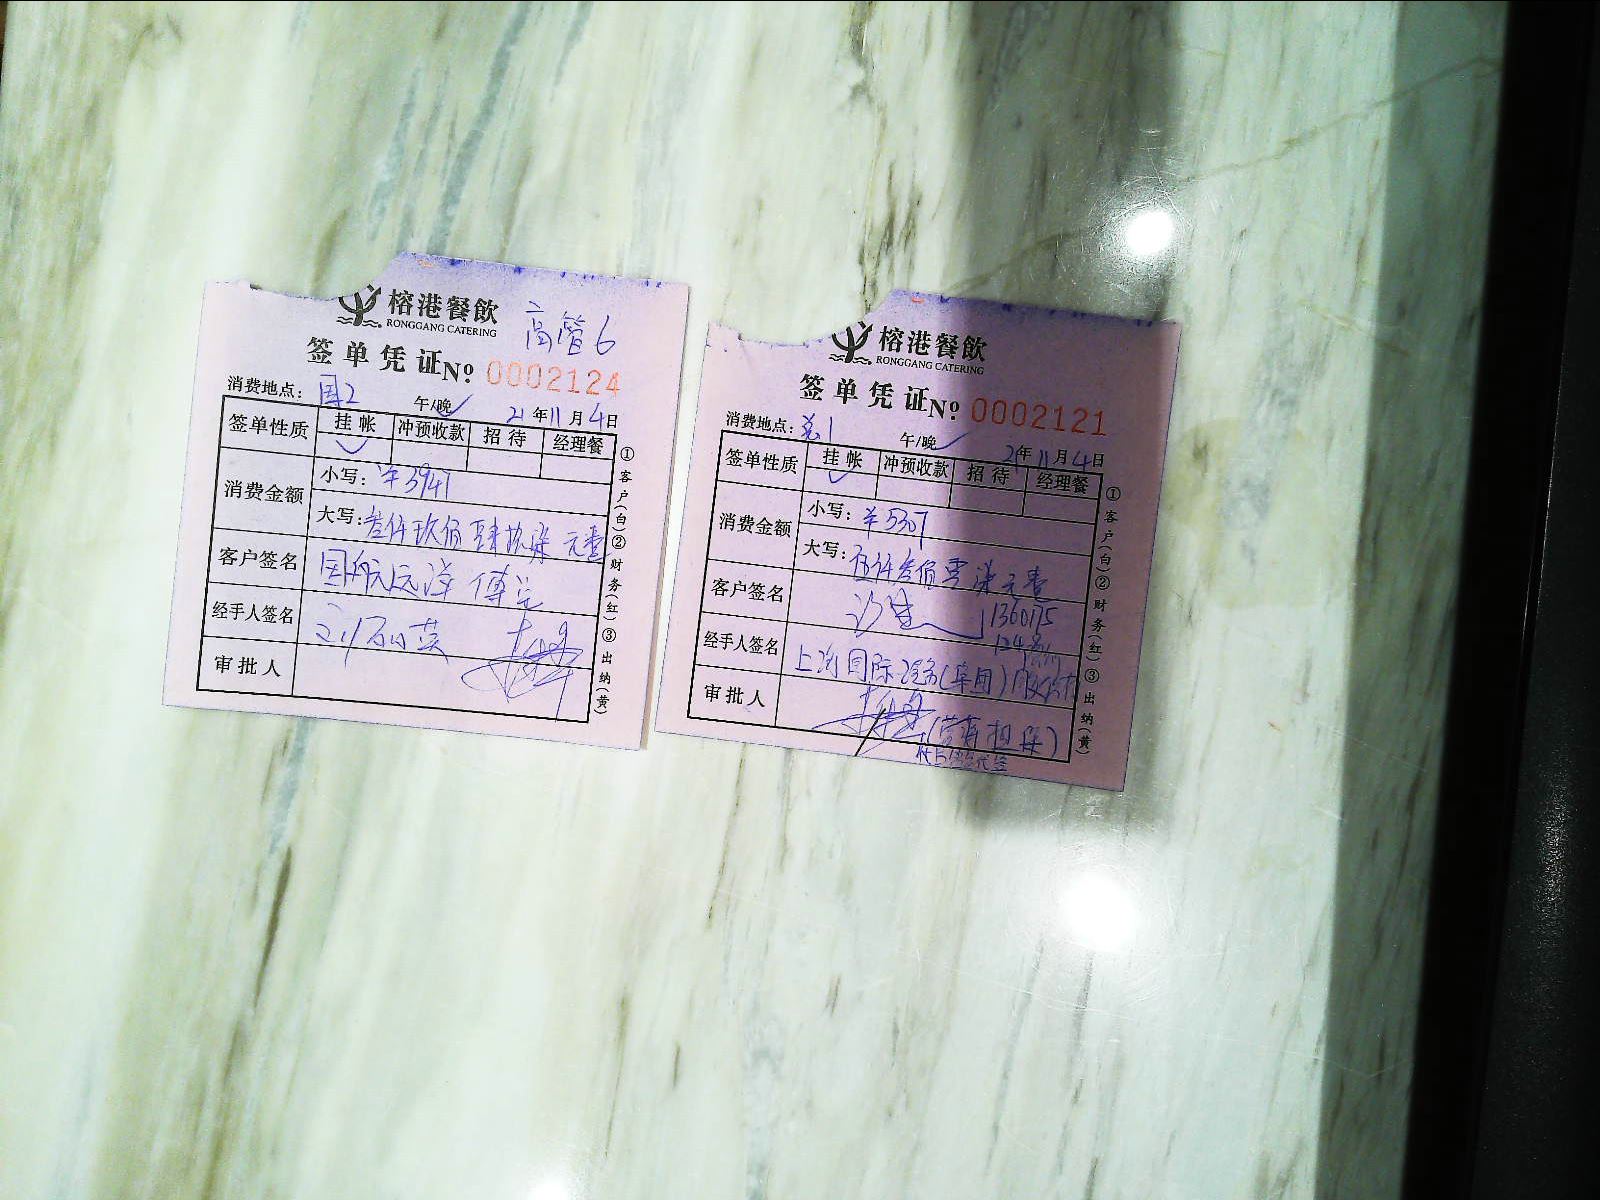 榕港餐飲
RONGGANG CATERING
高管6
签单凭证 No 0002124
消费地点: 国2 午/晚✓ 21年11月4日
签单性质 挂帐 冲预收款 招待 经理餐
✓
消费金额 小写: ¥3947
大写: 叁仟玖佰肆拾柒元整
客户签名 国航远洋 傅
经手人签名
审批人
①客户(白)②财务(红)③出纳(黄)
榕港餐飲
RONGGANG CATERING
签单凭证 No 0002121
消费地点: 1 午/晚✓ 21年11月4日
签单性质 挂帐 冲预收款 招待 经理餐
✓
消费金额 小写: ¥5307
大写: 伍仟叁佰零柒元整
客户签名 1360175
经手人签名 上海国际汽车(集团)
审批人 (营销担保)
①客户(白)②财务(红)③出纳(黄)